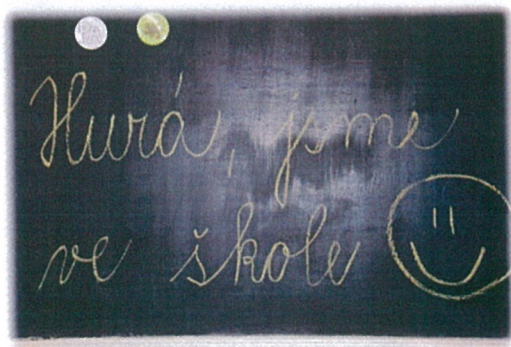 Hurá, jsme
ve škole